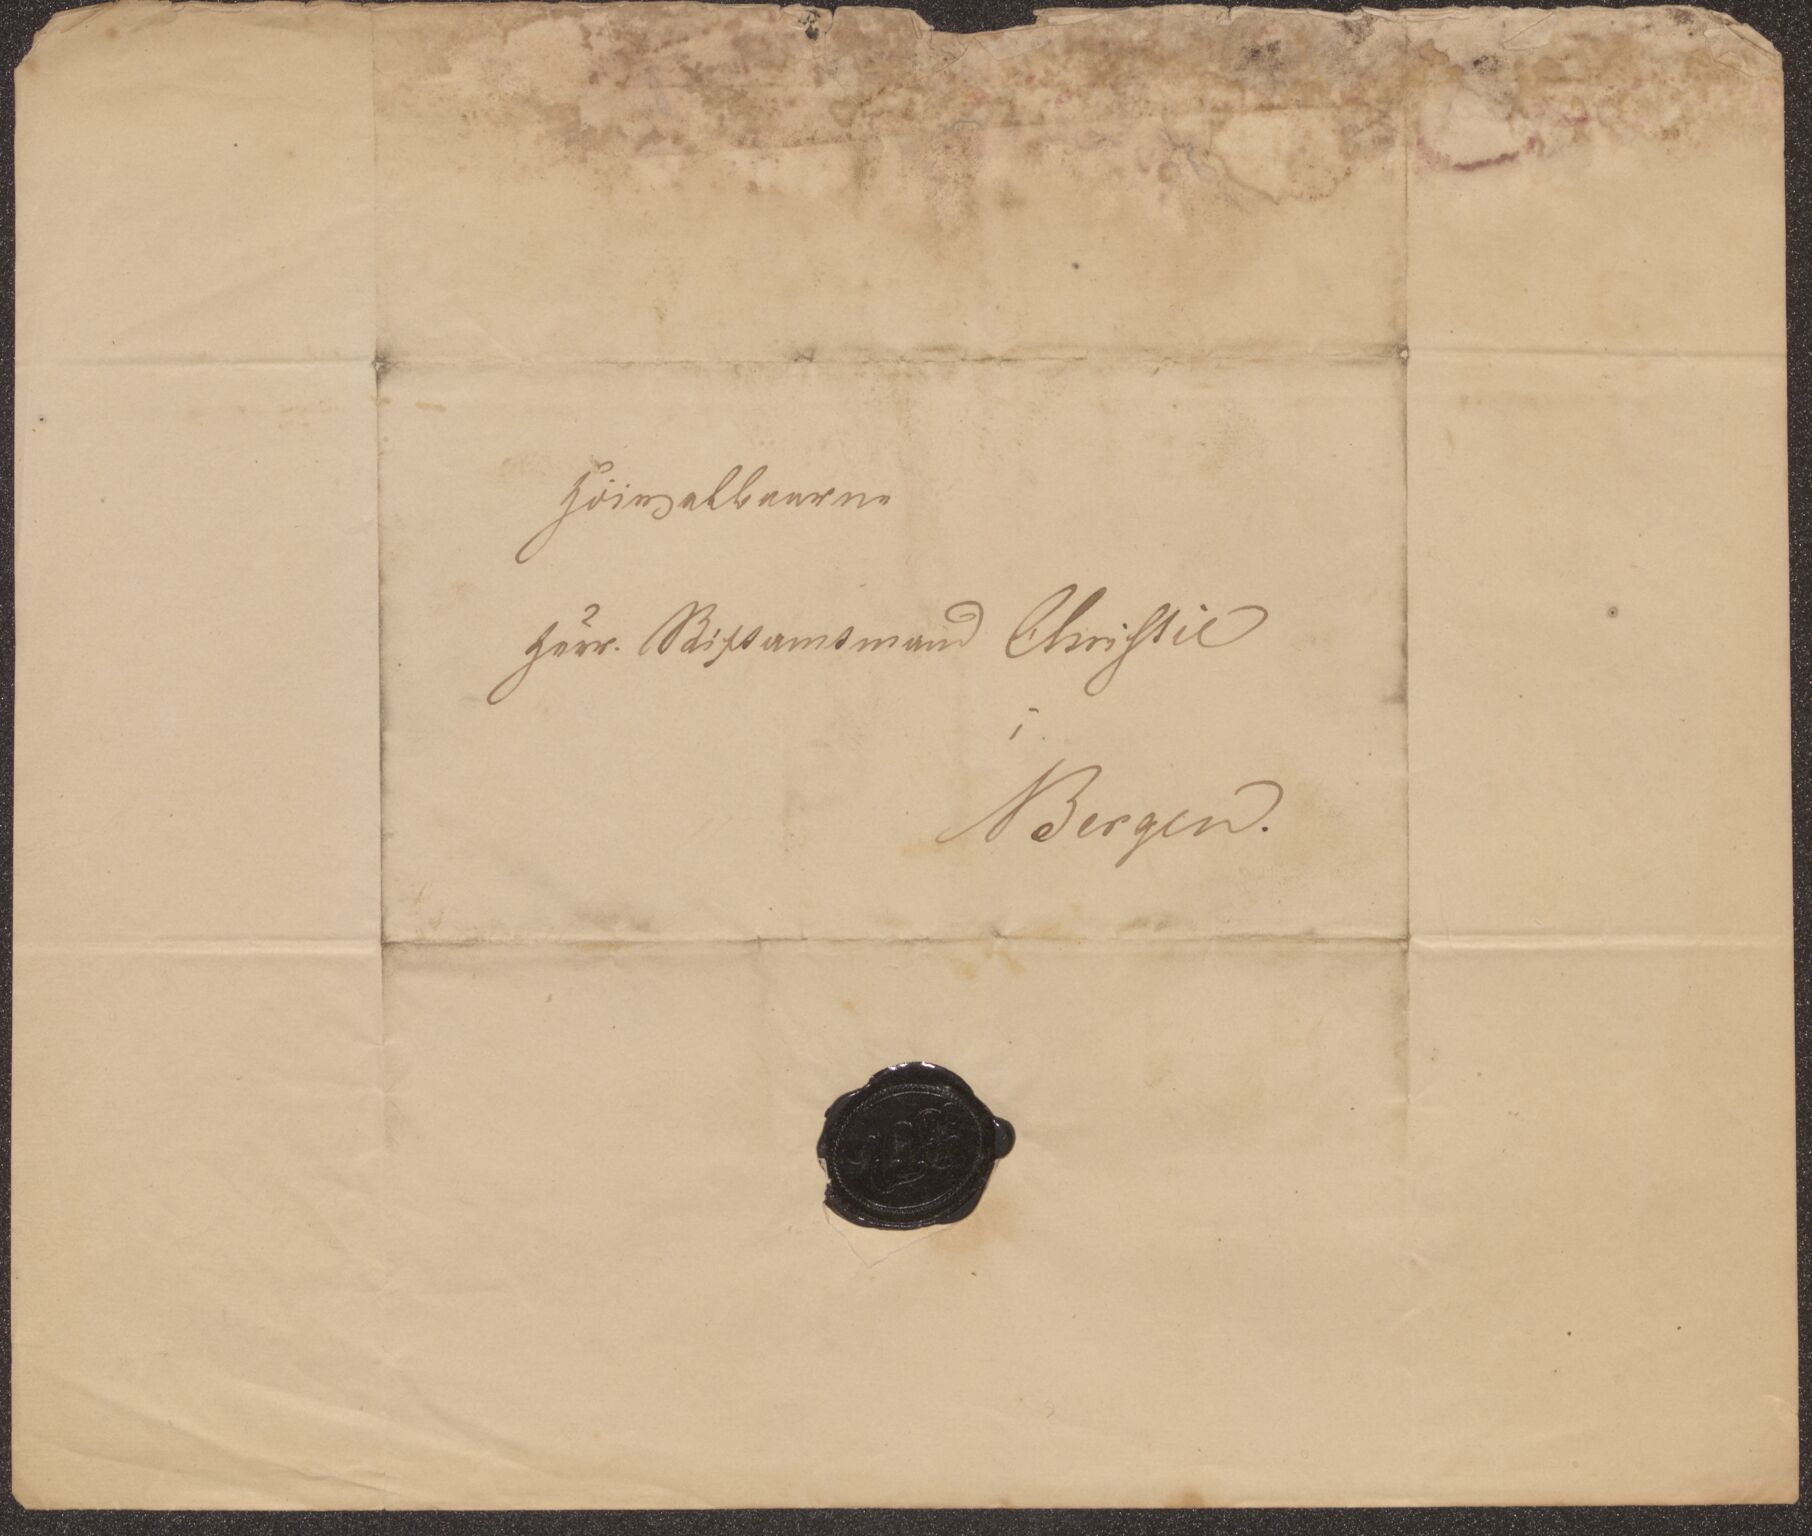 Höivelbaarne
Herr. Stiftamtmand Christie
i
Bergen.